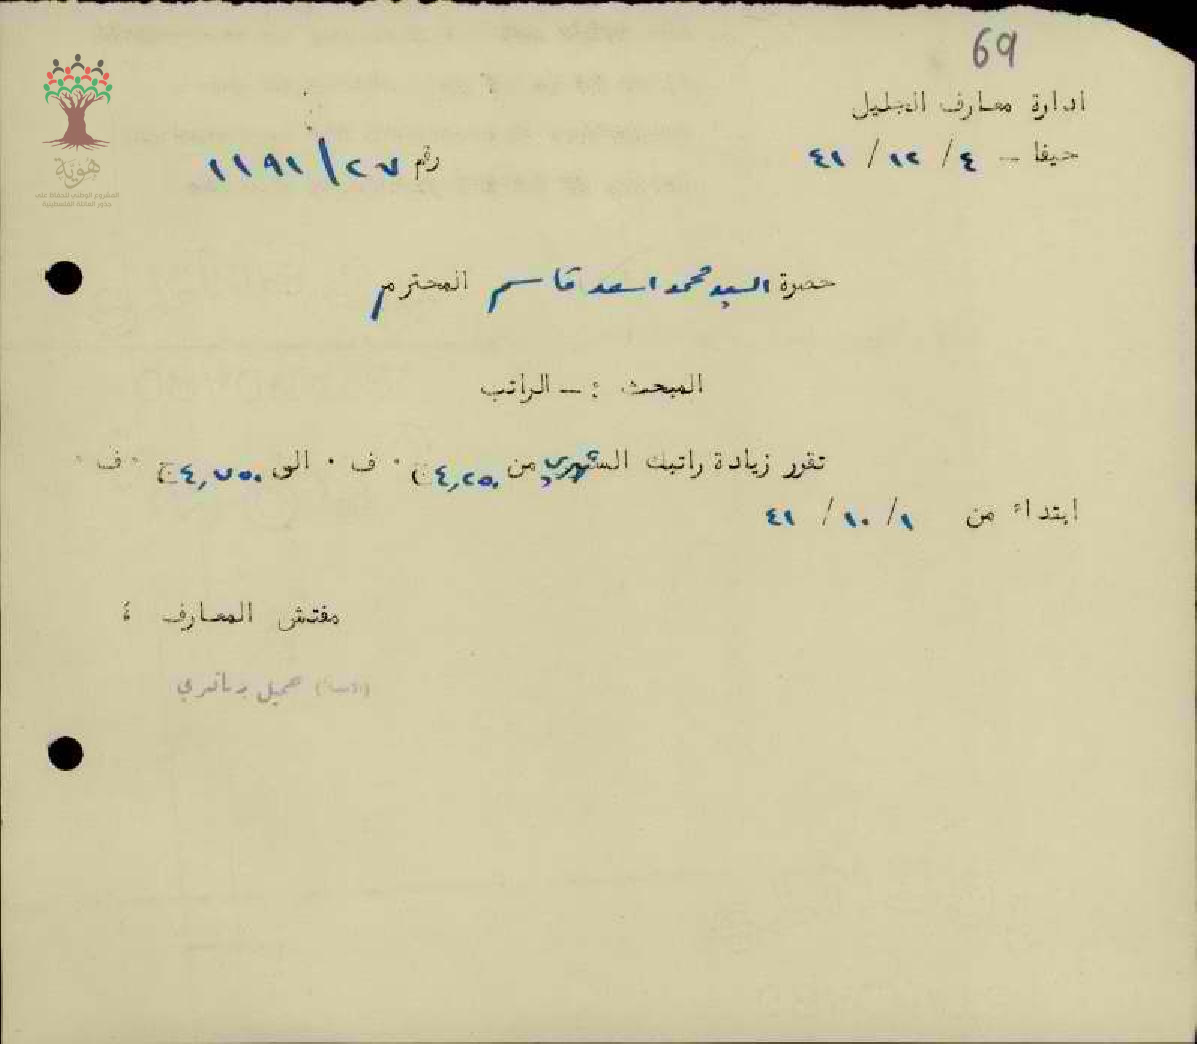 69
ادارة معارف الجليل
حيفا - ٤ / ١٢ / ٤١
رقم ٢٧ / ١١٩١
هوية
المشروع الوطني للحفاظ على
جذور العائلة الفلسطينية
حضرة السيد محمد اسعد قاسم المحترم
المبحث :- الراتب
تقرر زيادة راتبك الشهري من ٤,٢٥٠ ج ٠ ف ٠ الى ٤,٧٥٠ ج ٠ ف ٠
ابتداءً من ١ / ١٠ / ٤١
مفتش المعارف